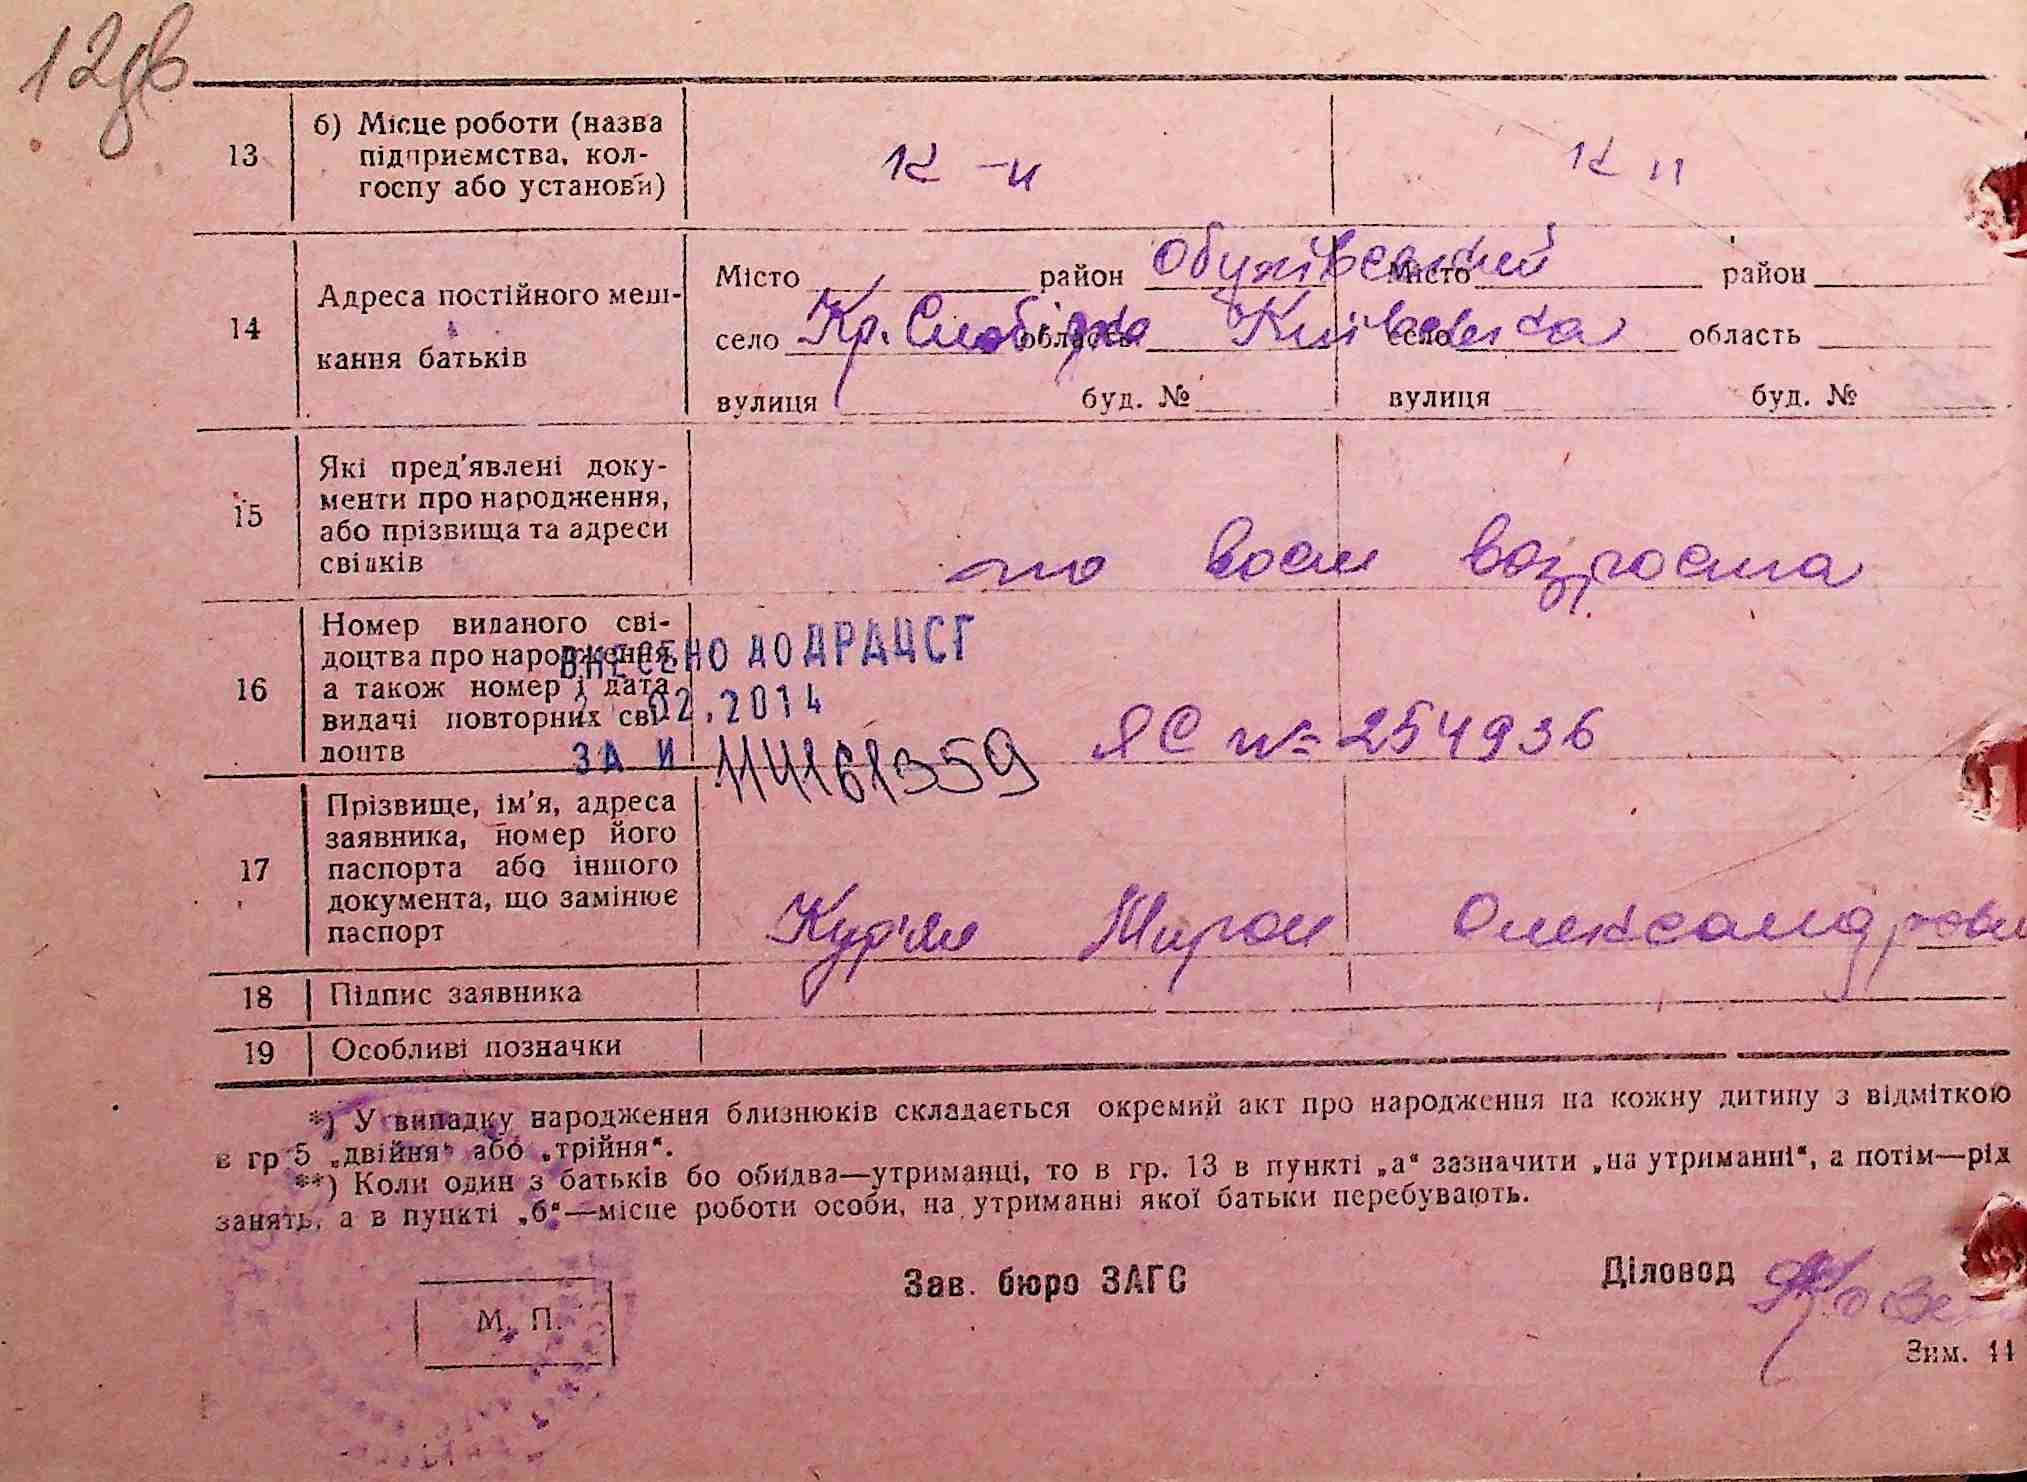 12зв
13
б) Місце роботи (назва
підприємства, кол-
госпу або установи)
к-п
к п
14
Адреса постійного меш-
кання батьків
Місто район Обухівський Місто район
село Кр. Слобідка область Київська село область
вулиця буд. № вулиця буд. №
15
Які пред'явлені доку-
менти про народження,
або прізвища та адреси
свідків
по восм возроста
16
Номер виданого сві-
доцтва про народження,
а також номер і дата
видачі повторних сві-
доцтв
ВНЕСЕНО ДО ДРАЦСГ
02.2014
ЗА № 114161359
ЯС № 254936
17
Прізвище, ім'я, адреса
заявника, номер його
паспорта або іншого
документа, що замінює
паспорт
Мирон Олександрович
18 Підпис заявника
19 Особливі позначки
*) У випадку народження близнюків складається окремий акт про народження на кожну дитину з відміткою
в гр 5 „двійня“ або „трійня“.
**) Коли один з батьків бо обидва—утриманці, то в гр. 13 в пункті „а“ зазначити „на утриманні“, а потім—рід
занять, а в пункті „б“—місце роботи особи, на утриманні якої батьки перебувають.
М. П.
Зав. бюро ЗАГС
Діловод
Зим. 11